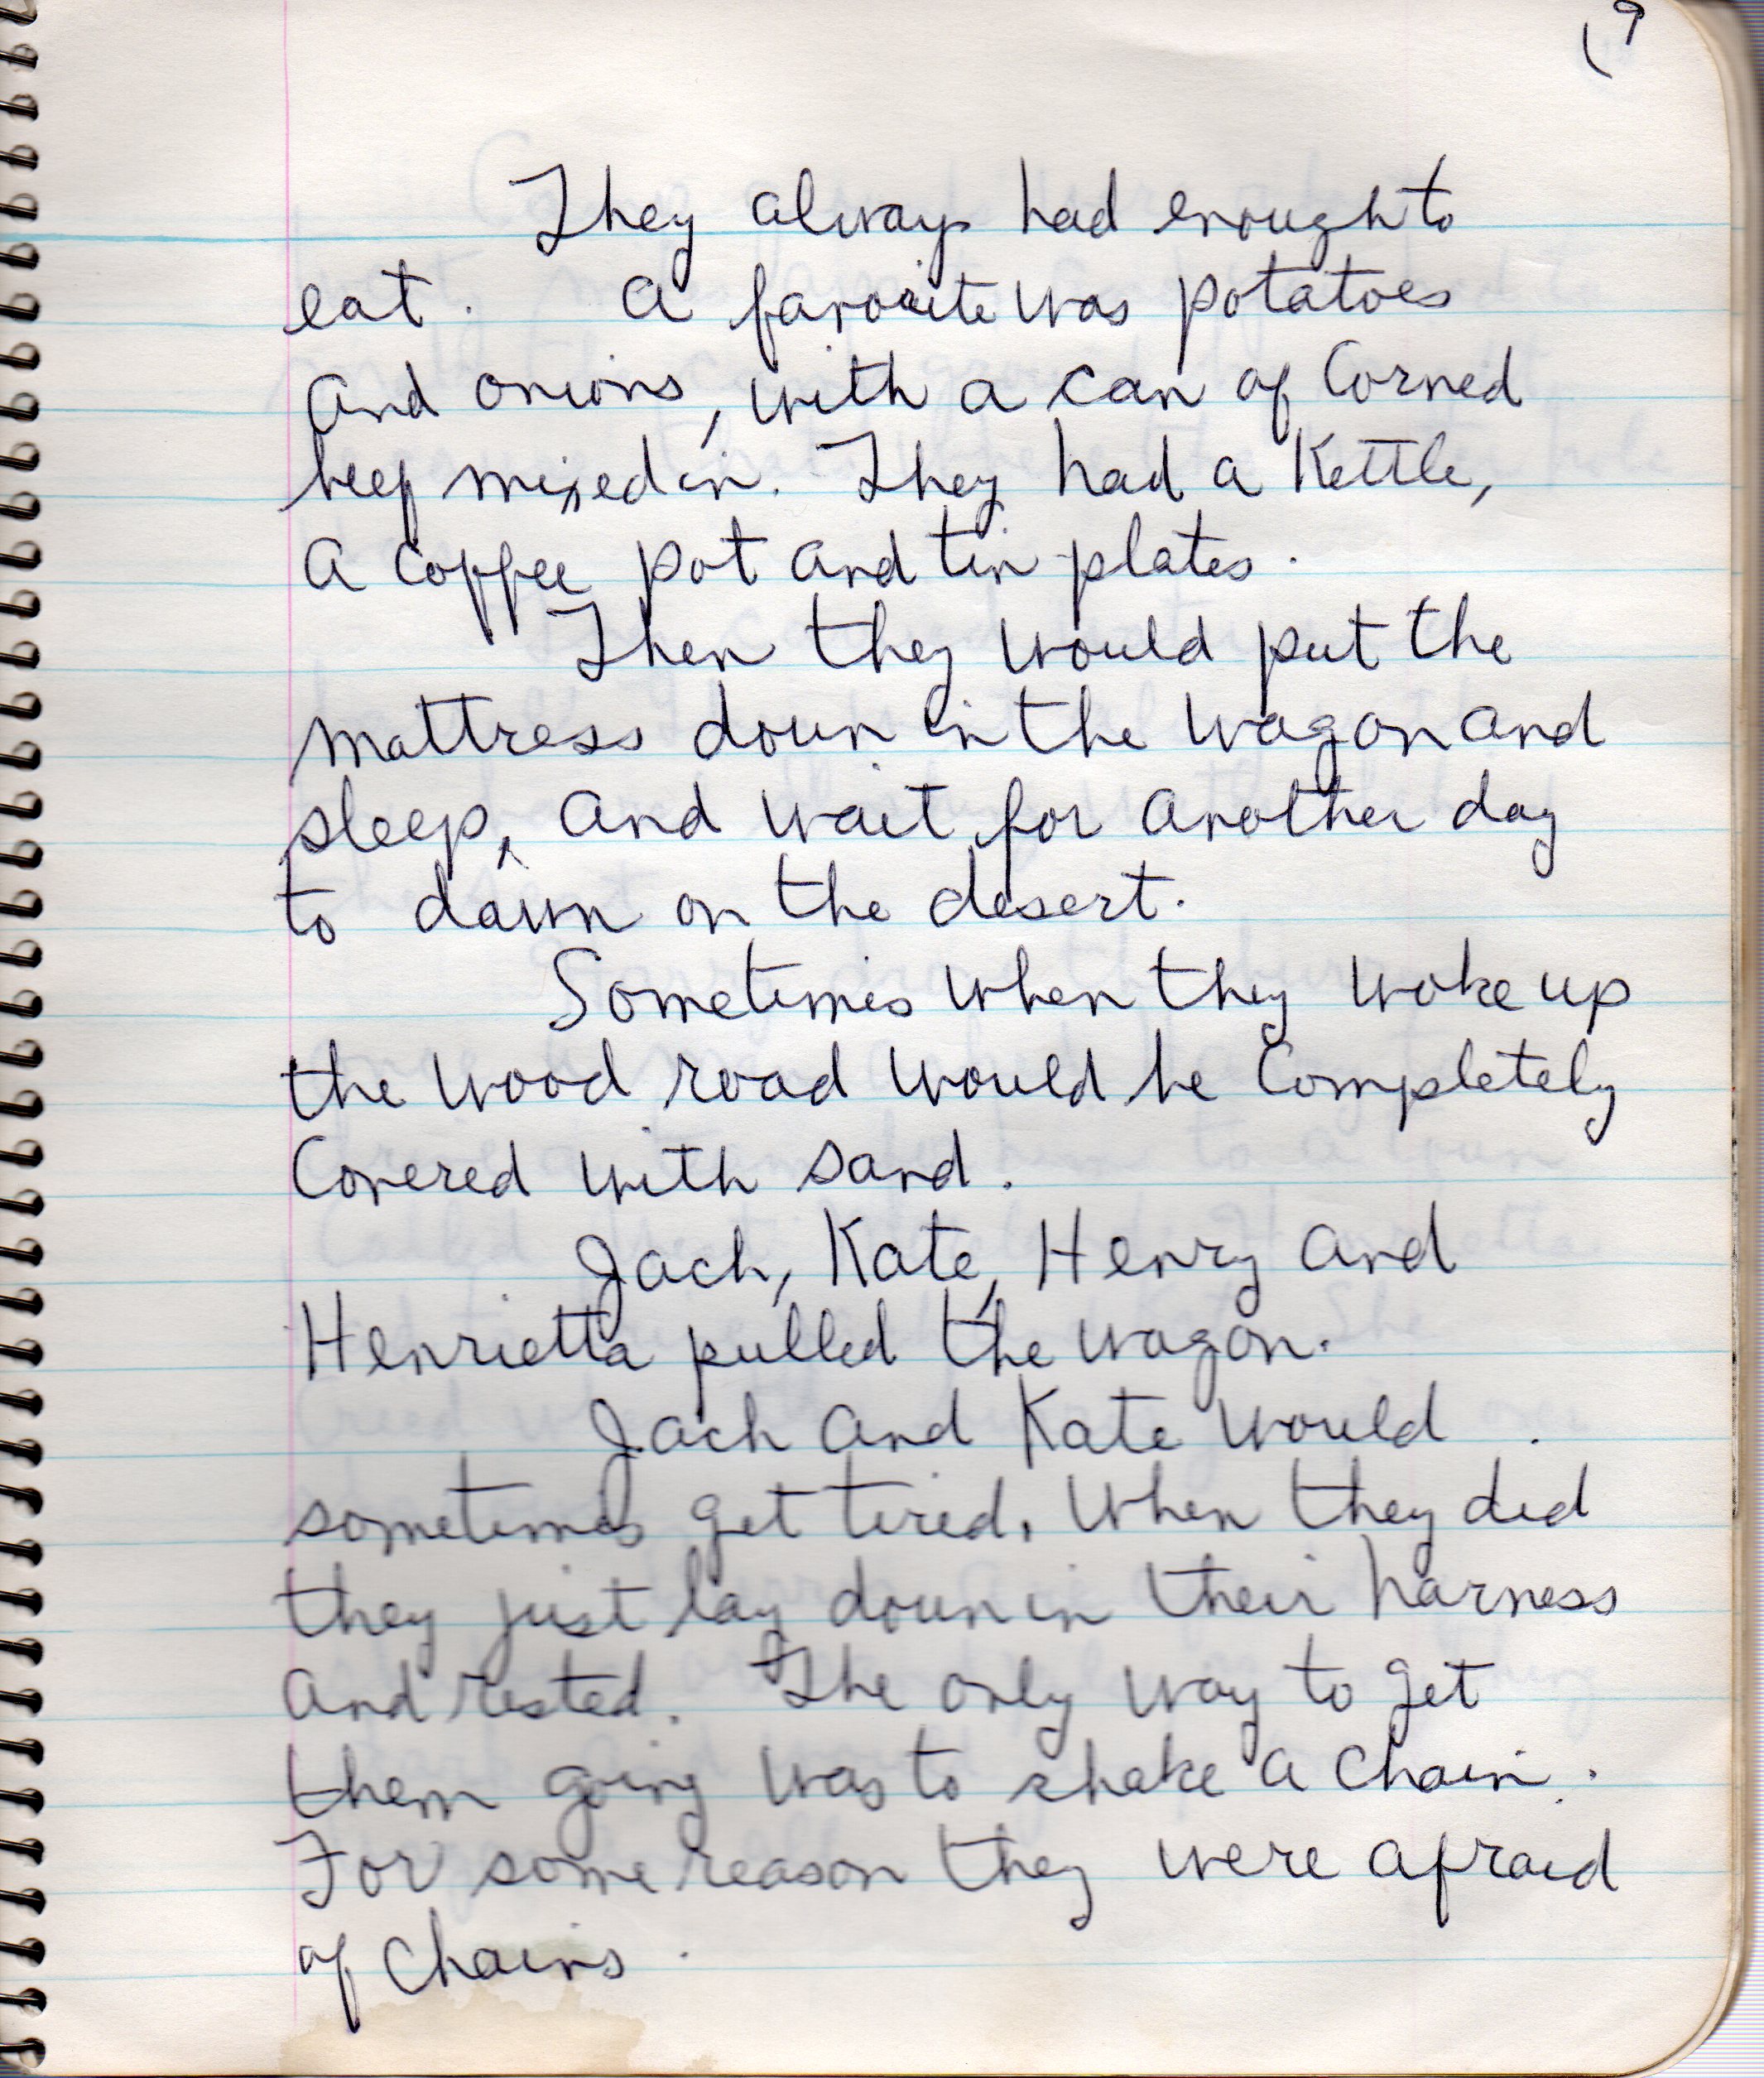 19
They always had enough to
eat. A favorite was potatoes
and onions, with a can of Corned
beef mixed in. They had a Kettle,
a coffee pot and tin plates.
Then they would put the
mattress down in the wagon and
sleep, and wait for another day
to dawn on the desert.
Sometimes when they woke up
the wood road would be Completely
Covered with sand.
Jack, Kate, Henry and
Henrietta pulled the wagon.
Jack and Kate would
sometimes get tired. When they did
they just lay down in their harness
and rested. The only way to get
them going was to shake a chain.
For some reason they were afraid
of chains.